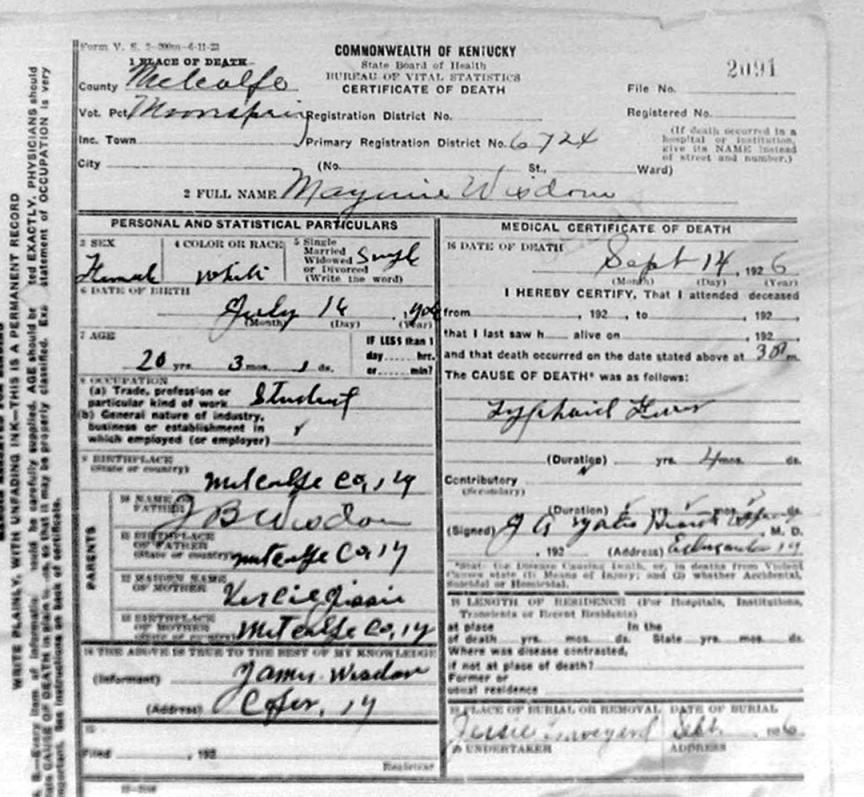 Form V. S. 2-200m-6-11-23
COMMONWEALTH OF KENTUCKY
State Board of Health
BUREAU OF VITAL STATISTICS
CERTIFICATE OF DEATH
2091
1 PLACE OF DEATH
County Metcalfe
File No.
Vot. Pct. Moonspring Registration District No.
Registered No.
Inc. Town Primary Registration District No. 6724
(If death occurred in a hospital or institution, give its NAME instead of street and number.)
City (No. St., Ward)
2 FULL NAME Maymie Wisdom
PERSONAL AND STATISTICAL PARTICULARS
3 SEX Female
4 COLOR OR RACE White
5 Single Married Widowed or Divorced (Write the word) Single
6 DATE OF BIRTH
July 14
(Month) (Day) (Year)
7 AGE
20 yrs. 3 mos. 1 ds.
IF LESS than 1 day hrs. or min?
8 OCCUPATION
(a) Trade, profession or particular kind of work Student
(b) General nature of industry, business or establishment in which employed (or employer)
9 BIRTHPLACE
(State or country)
Metcalfe Co, Ky
PARENTS
10 NAME OF FATHER J B Wisdom
11 BIRTHPLACE OF FATHER (State or country) Metcalfe Co, Ky
12 MAIDEN NAME OF MOTHER
13 BIRTHPLACE OF MOTHER (State or country) Metcalfe Co, Ky
14 THE ABOVE IS TRUE TO THE BEST OF MY KNOWLEDGE
(Informant) James Wisdom
(Address) Cofer, Ky
15
Filed , 192
Registrar
MEDICAL CERTIFICATE OF DEATH
16 DATE OF DEATH
Sept 14, 1926
(Month) (Day) (Year)
I HEREBY CERTIFY, That I attended deceased
from , 192 , to , 192
that I last saw h alive on , 192
and that death occurred on the date stated above at m.
The CAUSE OF DEATH* was as follows:
Typhoid Fever
(Duration) yrs. 4 mos. ds.
Contributory
(Secondary)
(Duration) yrs. mos. ds.
(Signed) J A Yates M. D.
, 192 (Address) Ky
*State the Disease Causing Death, or, in deaths from Violent Causes state (1) Means of Injury; and (2) whether Accidental, Suicidal or Homicidal.
18 LENGTH OF RESIDENCE (For Hospitals, Institutions, Transients or Recent Residents)
at place In the
of death yrs. mos. ds. State yrs. mos. ds.
Where was disease contracted,
if not at place of death?
Former or
usual residence
19 PLACE OF BURIAL OR REMOVAL DATE OF BURIAL
Jessie Graveyard Sept. 1926
20 UNDERTAKER ADDRESS
WRITE PLAINLY, WITH UNFADING INK—THIS IS A PERMANENT RECORD